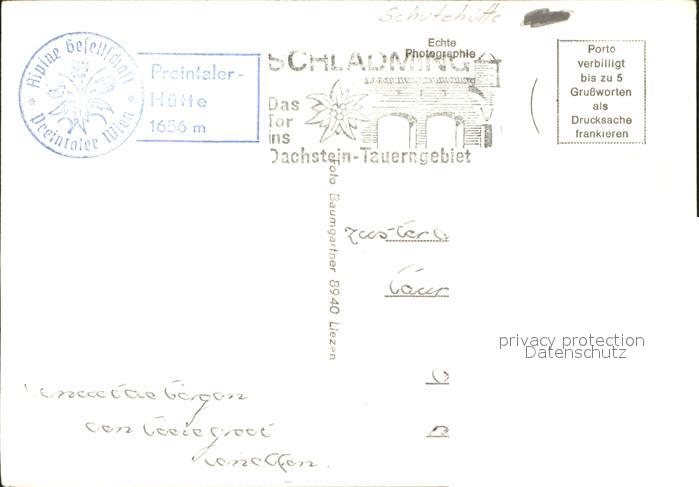 Schutzhütte
Alpine Gesellschaft
Preintaler Wien
Preintaler-
Hütte
1656 m
Echte
Photographie
SCHLADMING
Das
Tor
ins
Dachstein-Tauerngebiet
Porto
verbilligt
bis zu 5
Grußworten
als
Drucksache
frankieren
Foto Baumgartner 8940 Liezen
zuster
privacy protection
Datenschutz
een
groet